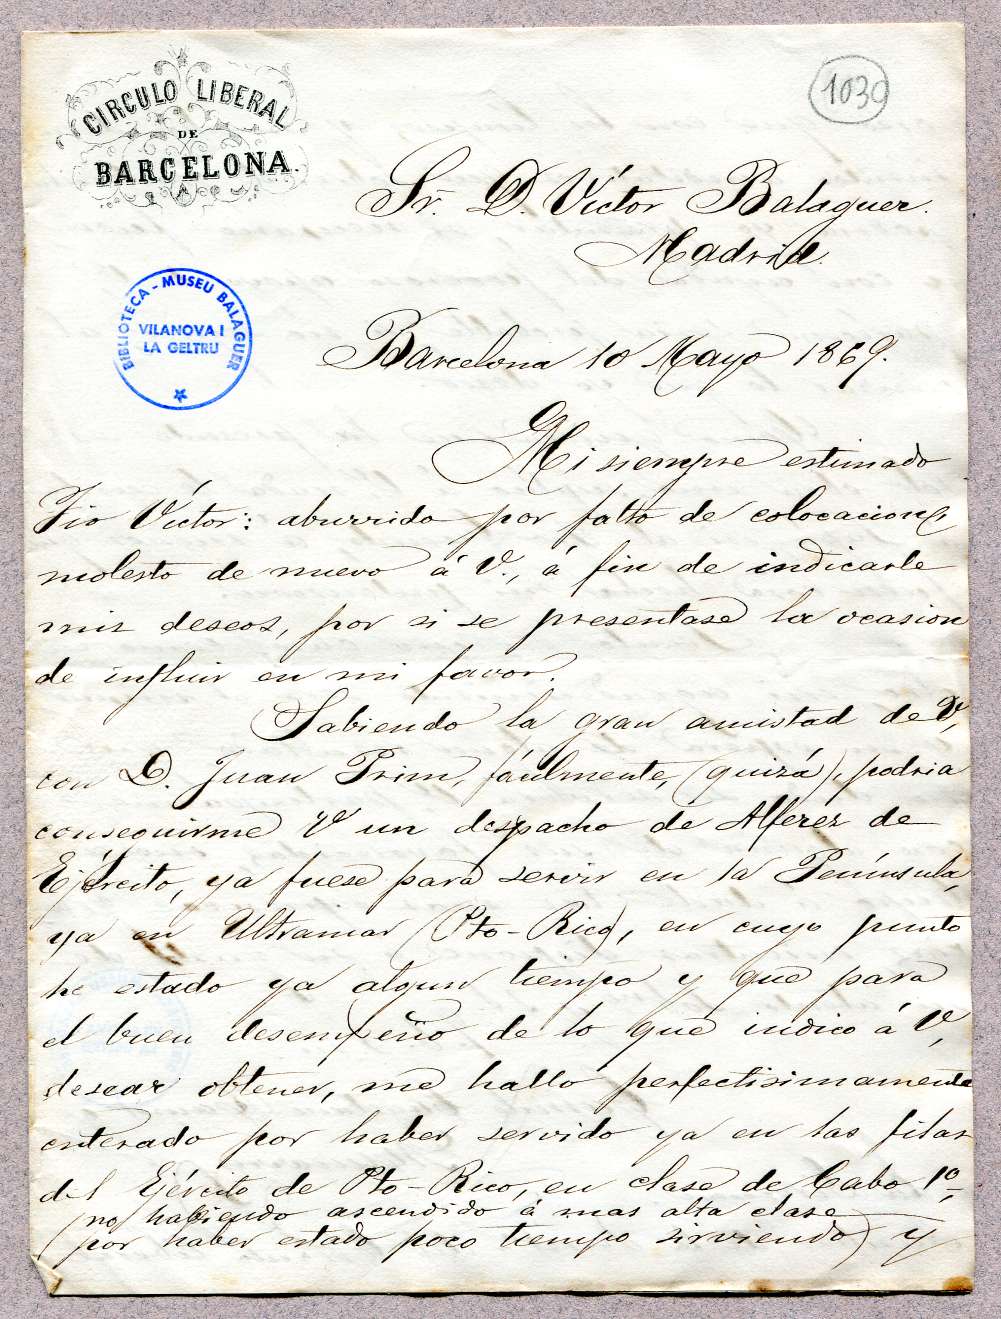 CIRCULO LIBERAL
DE
BARCELONA.
1030
Sr. D. Víctor Balaguer.
Madrid.
BIBLIOTECA - MUSEU BALAGUER
VILANOVA I
LA GELTRU
Barcelona 10 Mayo 1869.
Mi siempre estimado
Tio Víctor: aburrido por falta de colocacion,
molesto de nuevo á V., á fin de indicarle
mis deseos, por si se presentase la ocasion
de influir en mi favor.
Sabiendo la gran amistad de V,
con D. Juan Prim, fácilmente, (quizá), podria
conseguirme V un despacho de Alferez de
Ejército, ya fuese para servir en la Península,
ya en Ultramar (Pto-Rico), en cuyo punto
he estado ya algun tiempo y que para
el buen desempeño de lo que indico á V,
desear obtener, me hallo perfectisimamente
enterado por haber servido ya en las filas
del Ejército de Pto-Rico, en clase de Cabo 1º,
(no habiendo ascendido á mas alta clase
por haber estado poco tiempo sirviendo) y